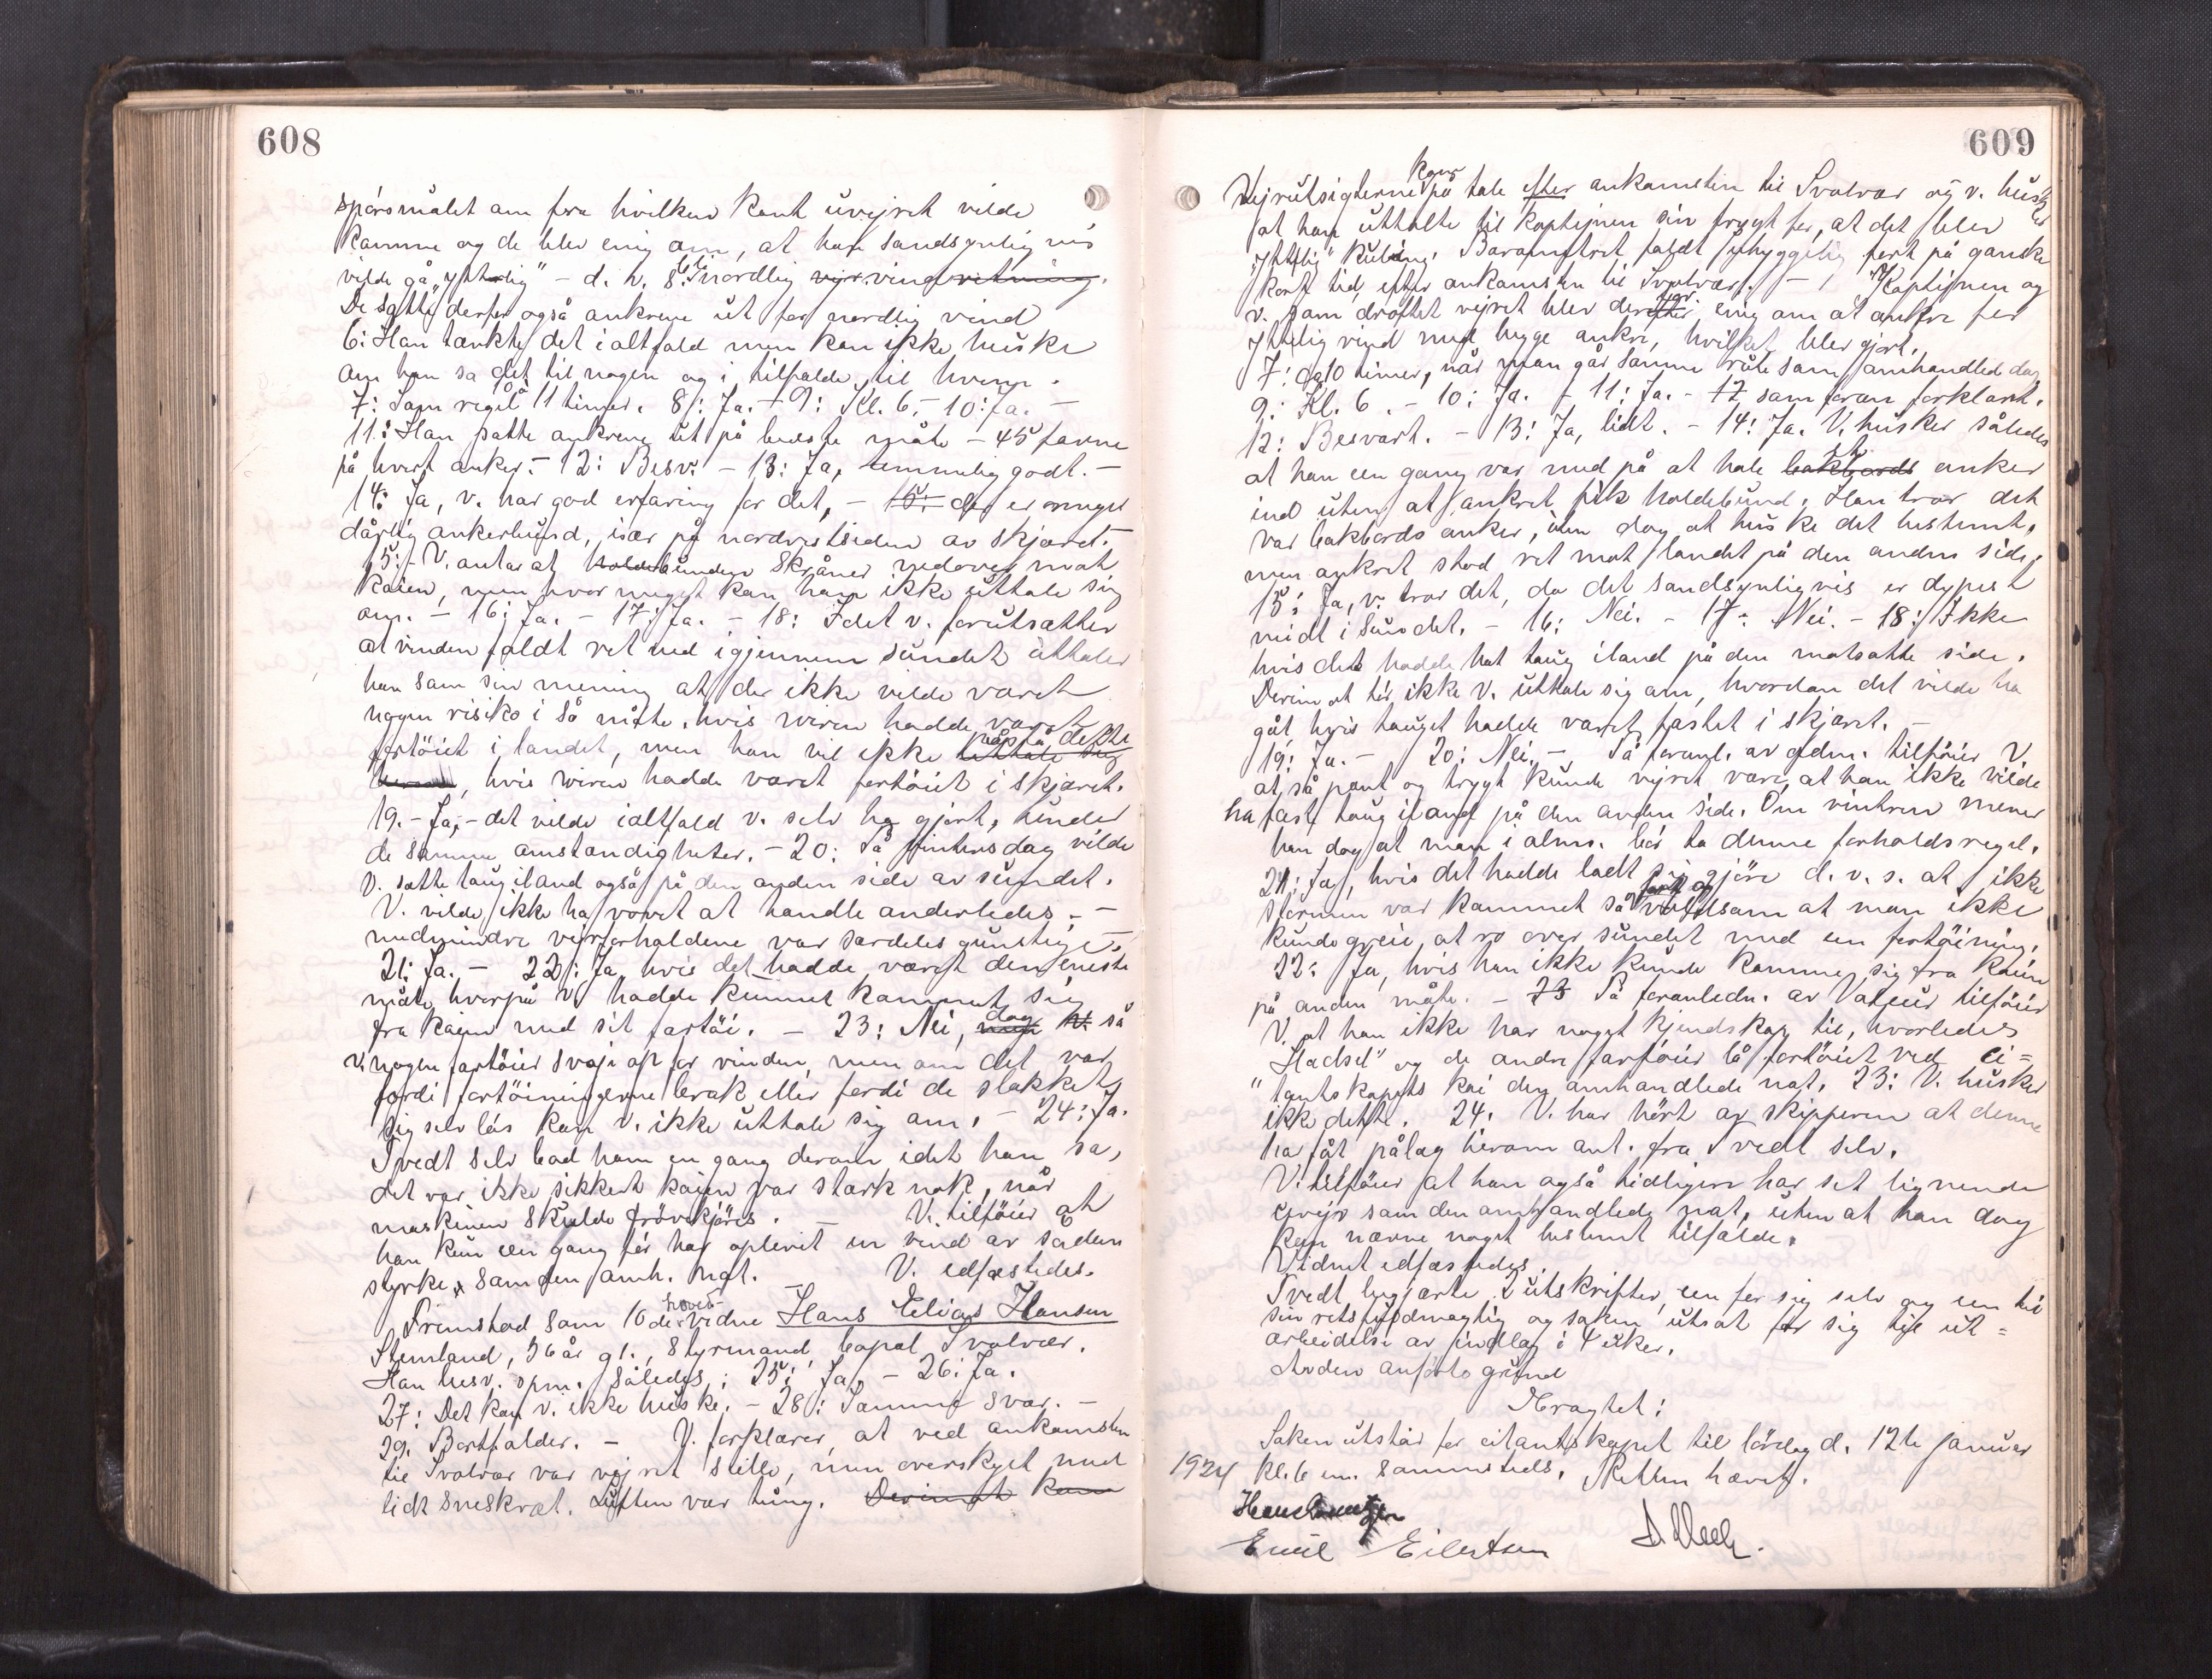 608
spørsmålet om fra hvilken kant uveiret vilde
komme og de blev enig om, at han sandsynligvis
vilde gå "ytterlig" - d. v. s. bli nordlig vind
De satte derfor også ankrene ut for nordlig vind
6: Han tænkte det ialtfald men kan ikke huske
om han sa det til nogen og i tilfælde til hvem.
7: Som regel 10 à 11 timer. 8: Ja. - 9: Kl. 6. - 10: Ja. -
11: Han satte ankrene ut på bedste måte - 45 favne
på hvert anker. - 12: Besv. - 13: Ja, temmelig godt. -
14: Ja, v. har god erfaring for det, - 15: der er meget
dårlig ankerbund, især på nordvestsiden av skjæret. -
15: - V. antar at holdebunden skråner nedover mot
kaien, men hvor meget kan han ikke uttale sig
om. - 16: Ja. - 17: Ja. - 18: Idet v. forutsætter
at vinden faldt ret ned igjennem sundet uttaler
han som sin mening at der ikke vilde været
nogen risiko i så måte, hvis wiren hadde været
fortöiet i landet, men han vil ikke påstå dette
, hvis wiren hadde været fortöiet i skjæret.
19. - Ja, - det vilde ialtfald v. selv ha gjort, under
de samme omstændigheter. - 20: På vintersdag vilde
V. satte taug iland også på den anden side av sundet.
V. vilde ikke ha vovet at handle anderledes. -
medmindre veirforholdene var særdeles gunstige. -
21: Ja. - 22: Ja, hvis det hadde været den eneste
måte, hvorpå V. hadde kunnet kommet sig
fra kaien med sit fartöi. - 23: Nei, dog så
v. nogen fartöier svaje op for vinden, men om det var
fordi fortöiningerne brak eller fordi de slakket
sig selv løs kan v. ikke uttale sig om. - 24: Ja.
Tvedt selv bad ham en gang derom idet han sa,
det var ikke sikkert kaien var stærk nok, når
maskinen skulde prøvekjøres. - V. tilföier at
han kun een gang för har oplevet en vind av sadan
styrke, som den omh. nat. - V. edfæstedes.
Fremstod som 10de hoved- vidne Hans Elias Hansen
Stemland, 36 år gl., styrmand, bopæl Svolvær.
Han besv. spm. således: 25: Ja. - 26: Ja.
27: Det kan v. ikke huske. - 28: Samme svar. -
29. Bortfalder. - V. forklarer, at ved ankomsten
til Svolvær var vejret stille, men overskyet med
lidt sneskvæt. Luften var tung. Derimot kom
609
Vejrutsigterne kom på tale efter ankomsten til Svolvær og v. husker
at han uttalte til kaptejnen sin frygt for, at det blev
"ytterlig" kuling. Barometret faldt uhyggelig fort på ganske
kort tid efter ankomsten til Svolvær. - Kaptejnen og
v. som drøftet vejret blev derfor enig om at ankre for
ytterlig vind med begge ankre, hvilket blev gjort.
7: 10 timer, når man går samme rute som omhandlede dag
9: Kl. 6. - 10: Ja. - 11: Ja. - 12 som foran forklart.
12: Besvart. - 13: Ja, lidt. - 14: Ja. V. husker således
at han een gang var med på at hale et anker
ind uten at ankret fik holdebund. Han tror det
var bakbords anker, uten dog at huske det bestemt,
men ankret stod ret mot landet på den anden side.
15: Ja, v. tror det, da det sandsynligvis er dypest
midt i sundet. - 16: Nei. - 17: Nei. - 18: Ikke
hvis det hadde hat taug iland på den motsatte side.
Derimot tör ikke v. uttale sig om, hvordan det vilde ha
gåt, hvis tauget hadde været fæstet i skjæret. -
19: Ja. - 20: Nei. - På foranl. av odm. tilföier V.
at så pent og trygt kunde vejret være, at han ikke vilde
ha fæst taug iland på den anden side. Om vintren mener
han dog at man i alm. bör ta denne forholdsregel.
21: Ja, hvis det hadde ladt sig gjöre d. v. s. at ikke
stormen var kommet så fort og voldsom at man ikke
kunde greie, at ro over sundet med en fortöining.
22: Ja, hvis han ikke kunde komme sig fra kaien
på anden måte. - 23 På foranledn. av Vatsen tilföier
V. at han ikke har noget kjendskap til, hvorledes
Hadsel" og de andre fartöier lå fortöiet ved ci=
"tantskapets kai den omhandlede nat. 23: V. husker
ikke dette. 24. V. har hört av skipperen at denne
har fåt pålæg herom ant. fra Tvedt selv.
V. tilföier at han også tidligere har set lignende
uvejr som den omhandlede nat, uten at han dog
kan nævne noget bestemt tilfælde.
Vidnet edfæstedes.
Tvedt begjærte 2 utskrifter, een for sig selv og een til
sin retsfuldmægtig og saken utsat for sig til ut=
arbeidelse av indlæg i 4 uker.
Av den anførte grund
Eragtet:
Saken utstår for citantskapet til lördag d. 12te januar
1924 kl. 6 em. sammesteds. Retten hævet.
Emil Eilertsen